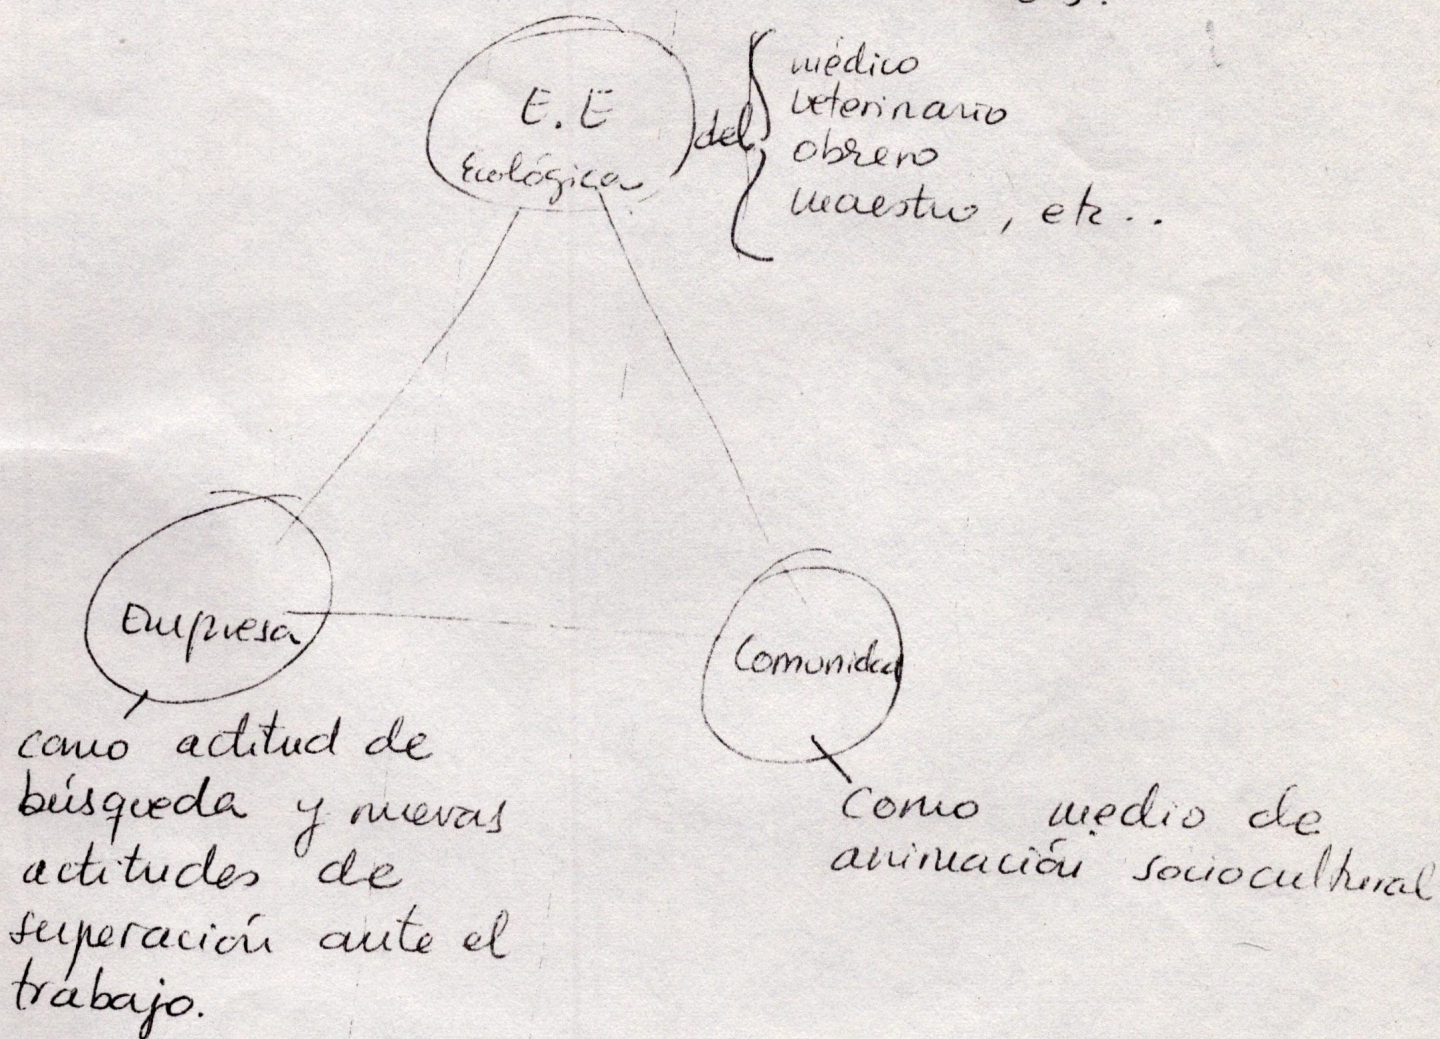 E.E
Ecológica
del
médico
veterinario
obrero
maestro, etc..
Empresa
Comunidad
como actitud de
búsqueda y nuevas
actitudes de
superación ante el
trabajo.
Como medio de
animación sociocultural